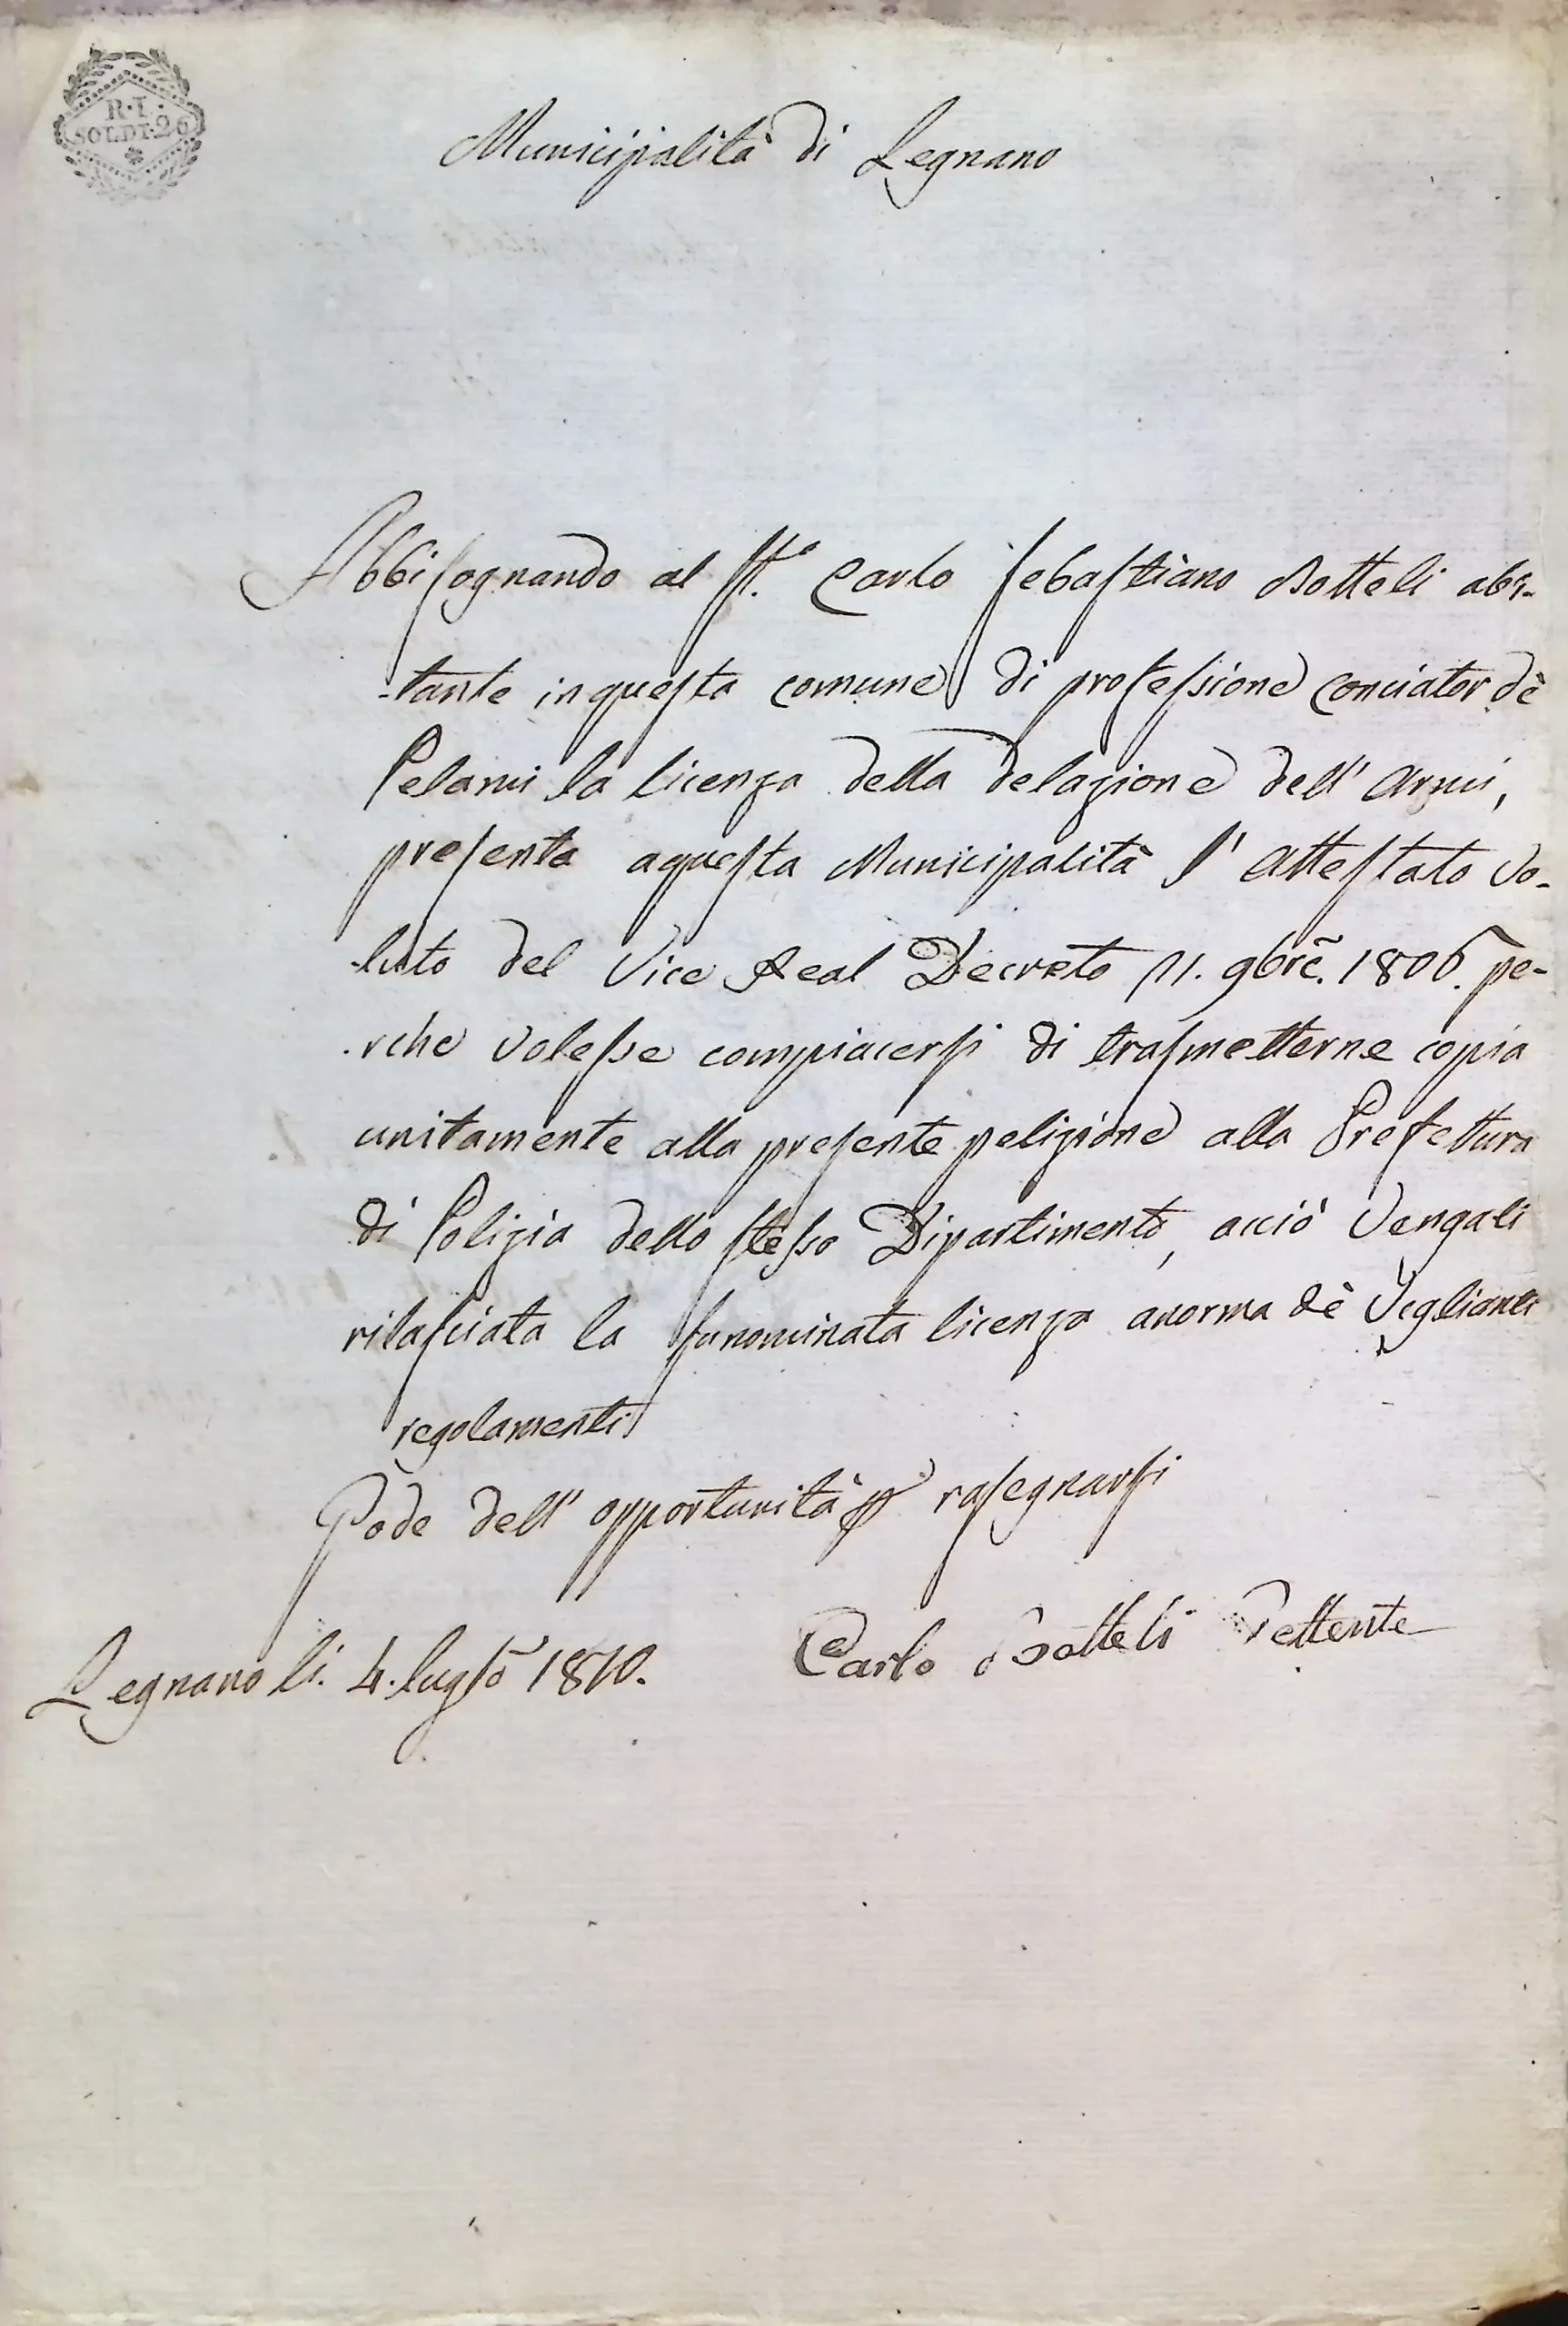 R. I.
SOLDI. 26
Municipalità di Legnano
Abbisognando al Sr. Carlo Sebastiano Botteli abi-
-tante inquesta comune di professione Conciator dè
Pelami la licenza della delazione dell' Armi,
presenta aquesta Municipalità l' Attestato vo-
-luto del Vice Real Decreto 11. 9brē. 1806. pe-
-rche volesse compiacersi di trasmetterne copia
unitamente alla presente petizione alla Prefettura
di Polizia dello stesso Dipartimento, acciò vengali
rilasciata la sunominata licenza anorma dè Veglianti
regolamenti
Gode dell' opportunità rasegnarsi
Carlo Botteli Pettente
Legnano li. 4. luglõ 1810.